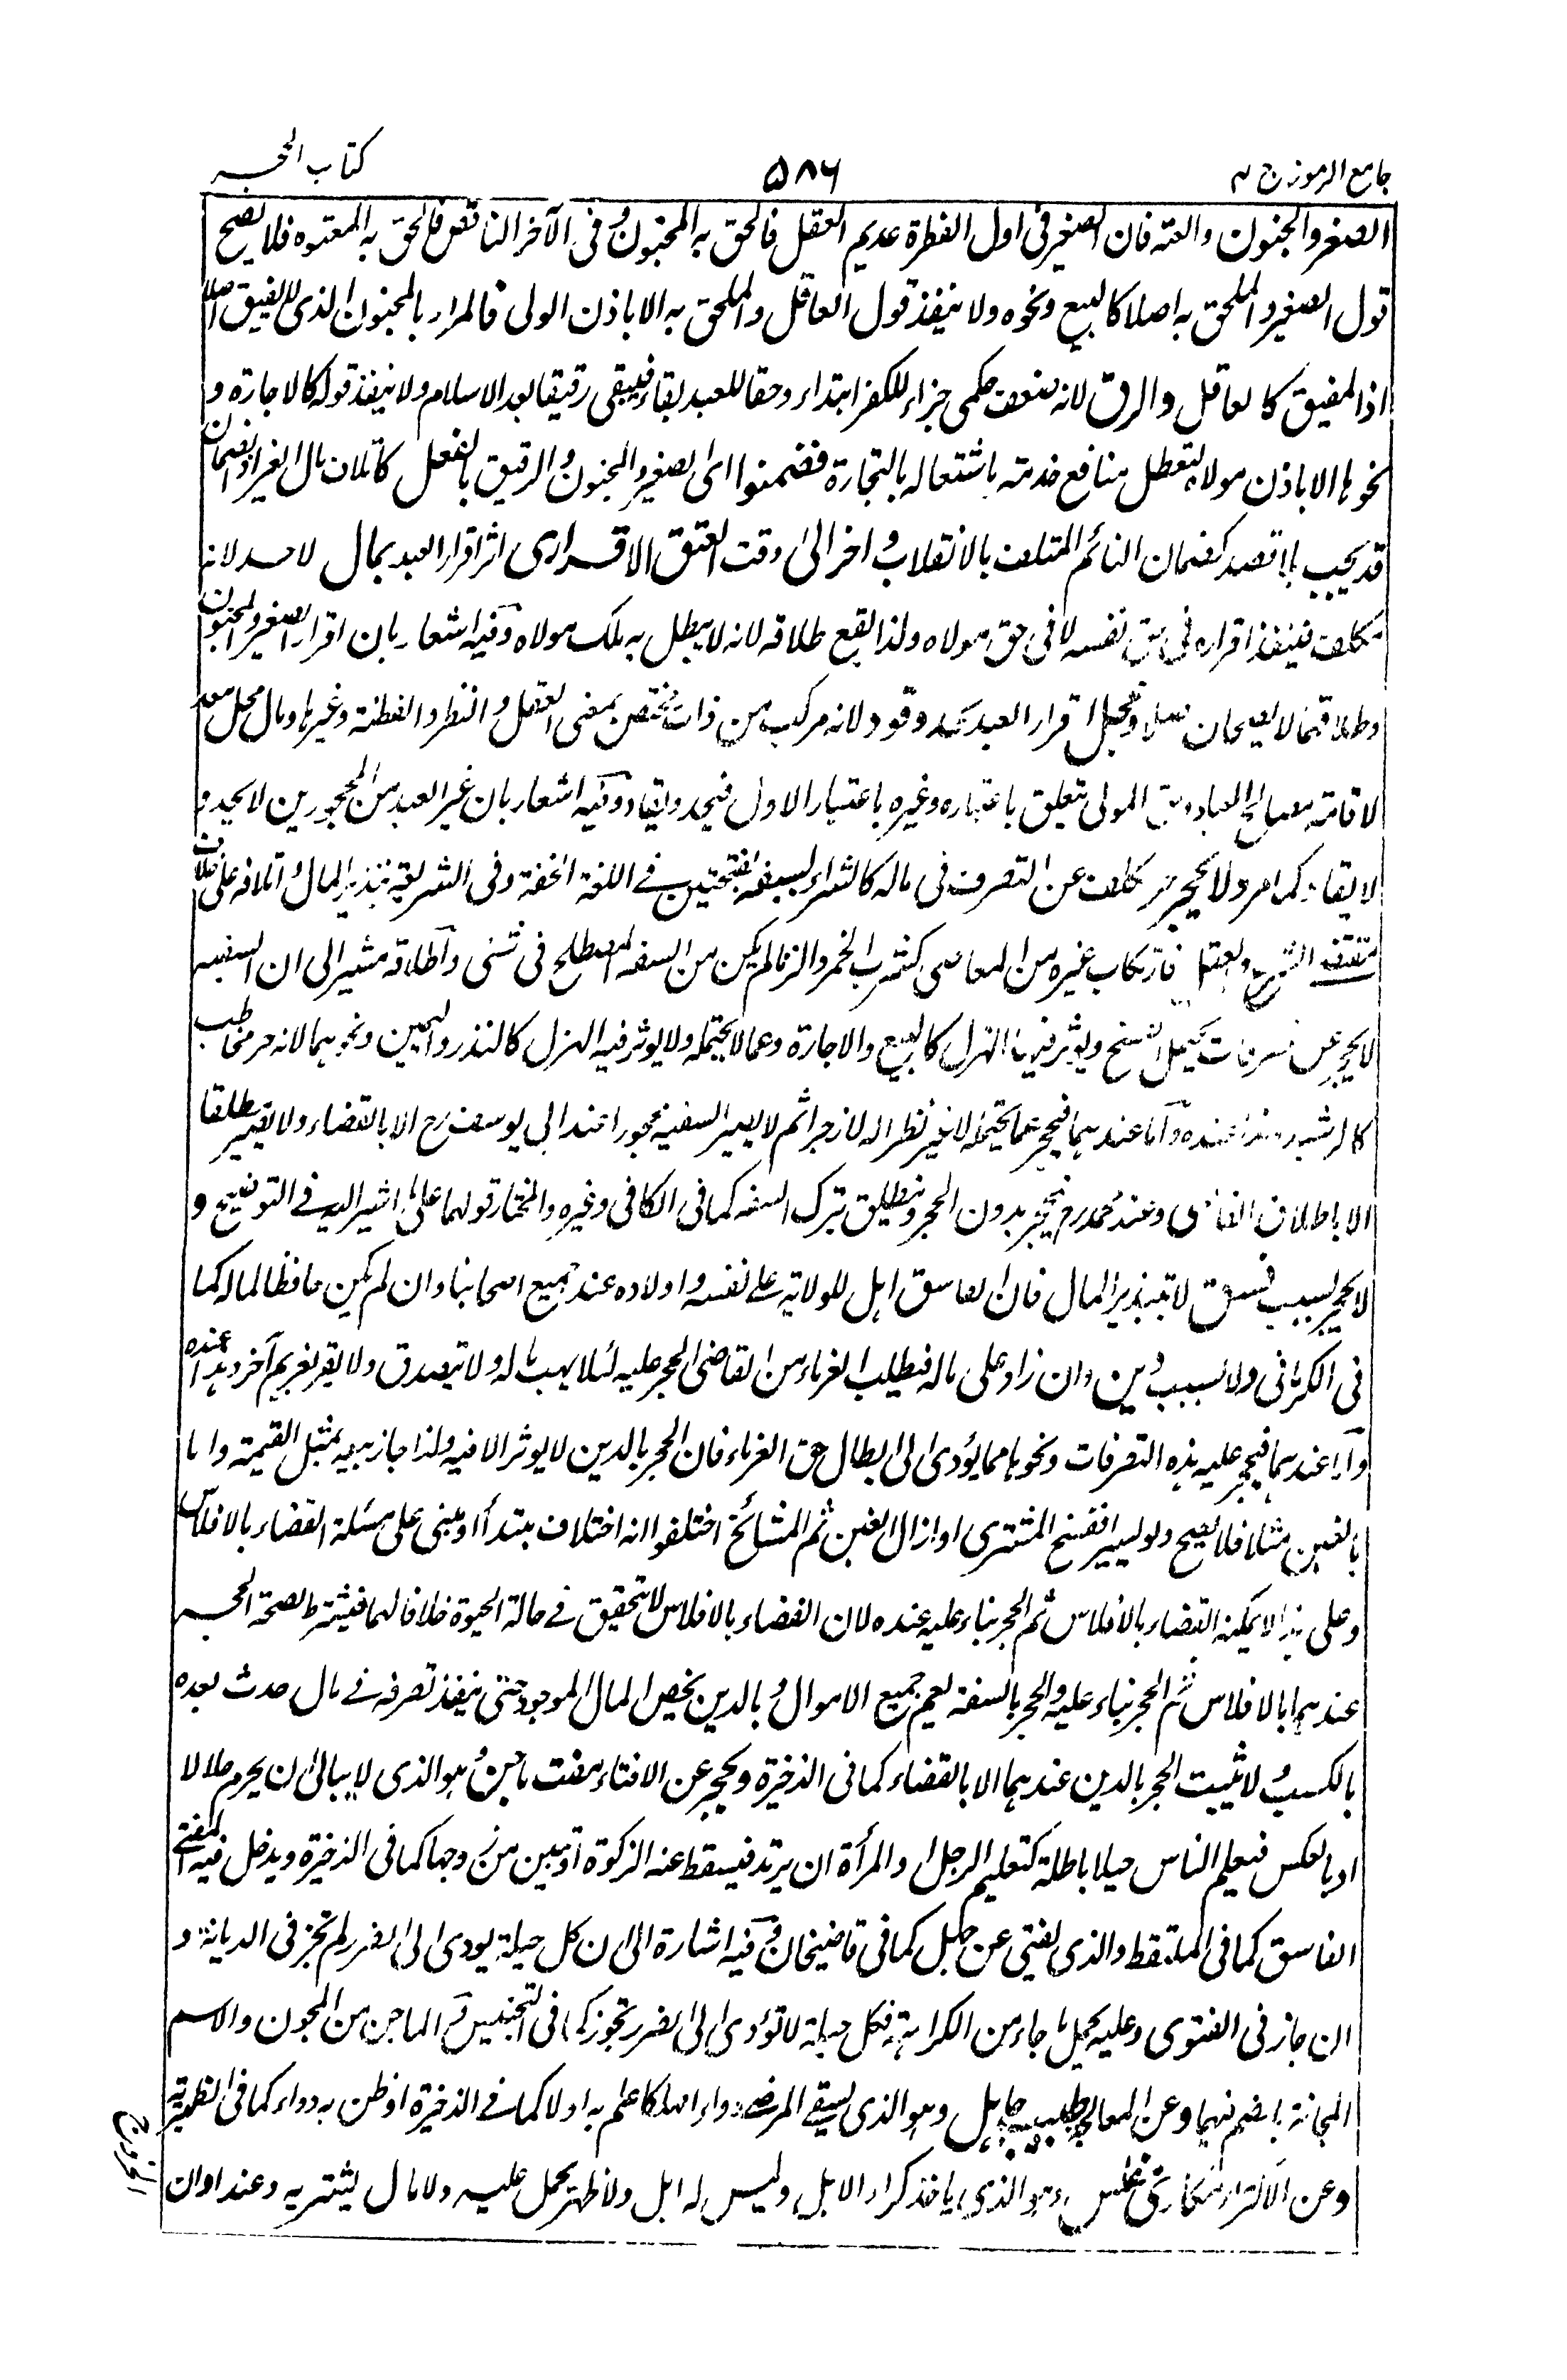 جامع الرموز ج ٣
٥٨٦
كتاب الحجر
الصغر والجنون والعته فان الصغير فى اول الفطرة عديم العقل فالحق به المجنون وفى الآخر الناقص فالحق به المعتوه فلا يصح
قول الصغير والملحق به اصلا كالبيع ونحوه ولا ينفذ قول العاقل والملحق به الا باذن الولى فالمراد بالمجنون الذى لا يفيق اصلا
اذ المفيق كالعاقل والرق لانه ضعف حكمى جزاء للكفر ابتداء وحقا للعبد بقاء فيبقى رقيقا بعد الاسلام ولا ينفذ قوله كالاجارة و
نحوها الا باذن مولاه لتعطل منافع خدمته باشتغاله بالتجارة فضمنوا اى الصغير والمجنون والرقيق بالفعل كاتلاف مال الغير اذ الضمان
قد يجب بلا قصد كضمان النائم المتلف بالانقلاب واخر الى وقت العتق الاقرارى اثر اقرار العبد بمال لا حد لانه
مكلف فينفذ اقراره فى حق نفسه لا فى حق مولاه ولذا يقع طلاقه لانه لا يبطل به ملك مولاه وفيه اشعار بان اقرار الصغير والمجنون
وطلاقهما لا يصحان اصلا وعجل اقرار العبد بحد وقود لانه مركب من ذات مختص بمعنى العقل والنظر والفطنة وغيرها ومال محل معد
لاقامة مصالح العباد وحق المولى تعلق باعتباره وغيره باعتبار الاول فيحد ويقاد وفيه اشعار بان غير العبد من المحجورين لا يحد و
لا يقاد كما مر ولا يحجر حر مكلف عن التصرف فى ماله كالشراء بسفه بفتحتين فى اللغة الخفة وفى الشريعة تبذير المال واتلافه على خلاف
مقتضى الشرع والعقل فارتكاب غيره من المعاصى كشرب الخمر والزنا لم يكن من السفه المصطلح فى شئ واطلاقه مشير الى ان السفيه
لا يحجر عن تصرفات يحتمل الفسخ ويؤثر فيها الهزل كالبيع والاجارة وعما لا يحتمله ولا يوثر فيه الهزل كالنذر واليمين ونحوهما لانه حر مخاطب
كالرشيد وهذا عنده واما عندهما فيحجر عما يحتمله لا غير نظرا له لا زجرا ثم لا يصير السفيه محجورا عند ابى يوسف رح الا بالقضاء ولا يصير مطلقا
الا باطلاق القاضى وعند محمد رح يحجر بدون الحجر وينطلق بترك السفه كما فى الكافى وغيره والمختار قولهما على ما اشير اليه فى التوضيح و
لا يحجر بسبب فسق لا بتبذير المال فان الفاسق اهل للولاية على نفسه واولاده عند جميع اصحابنا وان لم يكن حافظا لماله كما
فى الكرمانى ولا بسبب دين وان زاد على ماله فيطلب الغرماء من القاضى الحجر عليه لئلا يهب ماله ولا يتصدق ولا يقر لغريم آخر وهذا عنده
واما عندهما فيحجر عليه هذه التصرفات ونحوها مما يؤدى الى ابطال حق الغرماء فان الحجر بالدين لا يوثر الا فيه ولذا جاز بيعه بمثل القيمة واما
بالغبن مثلا فلا يصح ولو يسيرا ففسخ المشترى او ازال الغبن ثم المشائخ اختلفوا انه اختلاف مبتدأ او مبنى على مسئلة القضاء بالافلاس
وعلى هذا لا يمكنه القضاء بالافلاس ثم الحجر بناء عليه عنده لان القضاء بالافلاس لا يتحقق فى حالة الحيوة خلافا لهما فيشترط لصحة الحجر
عندهما بالافلاس ثم الحجر بناء عليه والحجر بالسفه يعم جميع الاموال وبالدين يخص المال الموجود حتى ينفذ تصرفه فى مال حدث بعده
بالكسب ولا يثبت الحجر بالدين عندهما الا بالقضاء كما فى الذخيرة ويحجر عن الافتاء مفت ماجن وهو الذى لا يبالى ان يحرم حلالا
او بالعكس فيعلم الناس حيلا باطلة كتعليم الرجل او المرأة ان يرتد فيسقط عنه الزكوة او تبين من زوجها كما فى الذخيرة ويدخل فيه المفتى
الفاسق كما فى الملتقط والذى يفتى عن جهل كما فى قاضيخان وفيه اشارة الى ان كل حيلة يودى الى الضرر لم تجز فى الديانة و
ان جاز فى الفتوى وعليه يحمل ما جاء من الكراهة فكل حيلة لا تؤدى الى الضرر تجوز كما فى التجنيس و الماجن من المجون والاسم
المجانة بالضم فيهما وعن المعالجة طبيب جاهل وهو الذى يسقى المرضى دواء مهلكا علم به اولا كما فى الذخيرة او ظن به دواء كما فى الظهيرية
وعن الاكتراء مكارى مفلس وهو الذى ياخذ كراء الابل وليس له ابل ولا ظهر يحمل عليه ولا مال يشتريه وعند اوان
الخروج